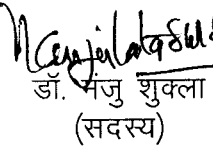 डॉ. मंजु शुक्ला
(सदस्य)